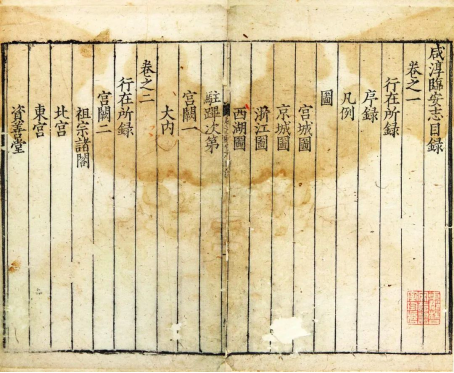 咸淳臨安志目録
卷之一
行在所録
序録
凡例
圖
宫城圖
京城圖
浙江圖
西湖圖
駐蹕次第
宫闕一
大内
卷之二
行在所録
宫闕二
祖宗諸閣
北宫
東宫
資善堂